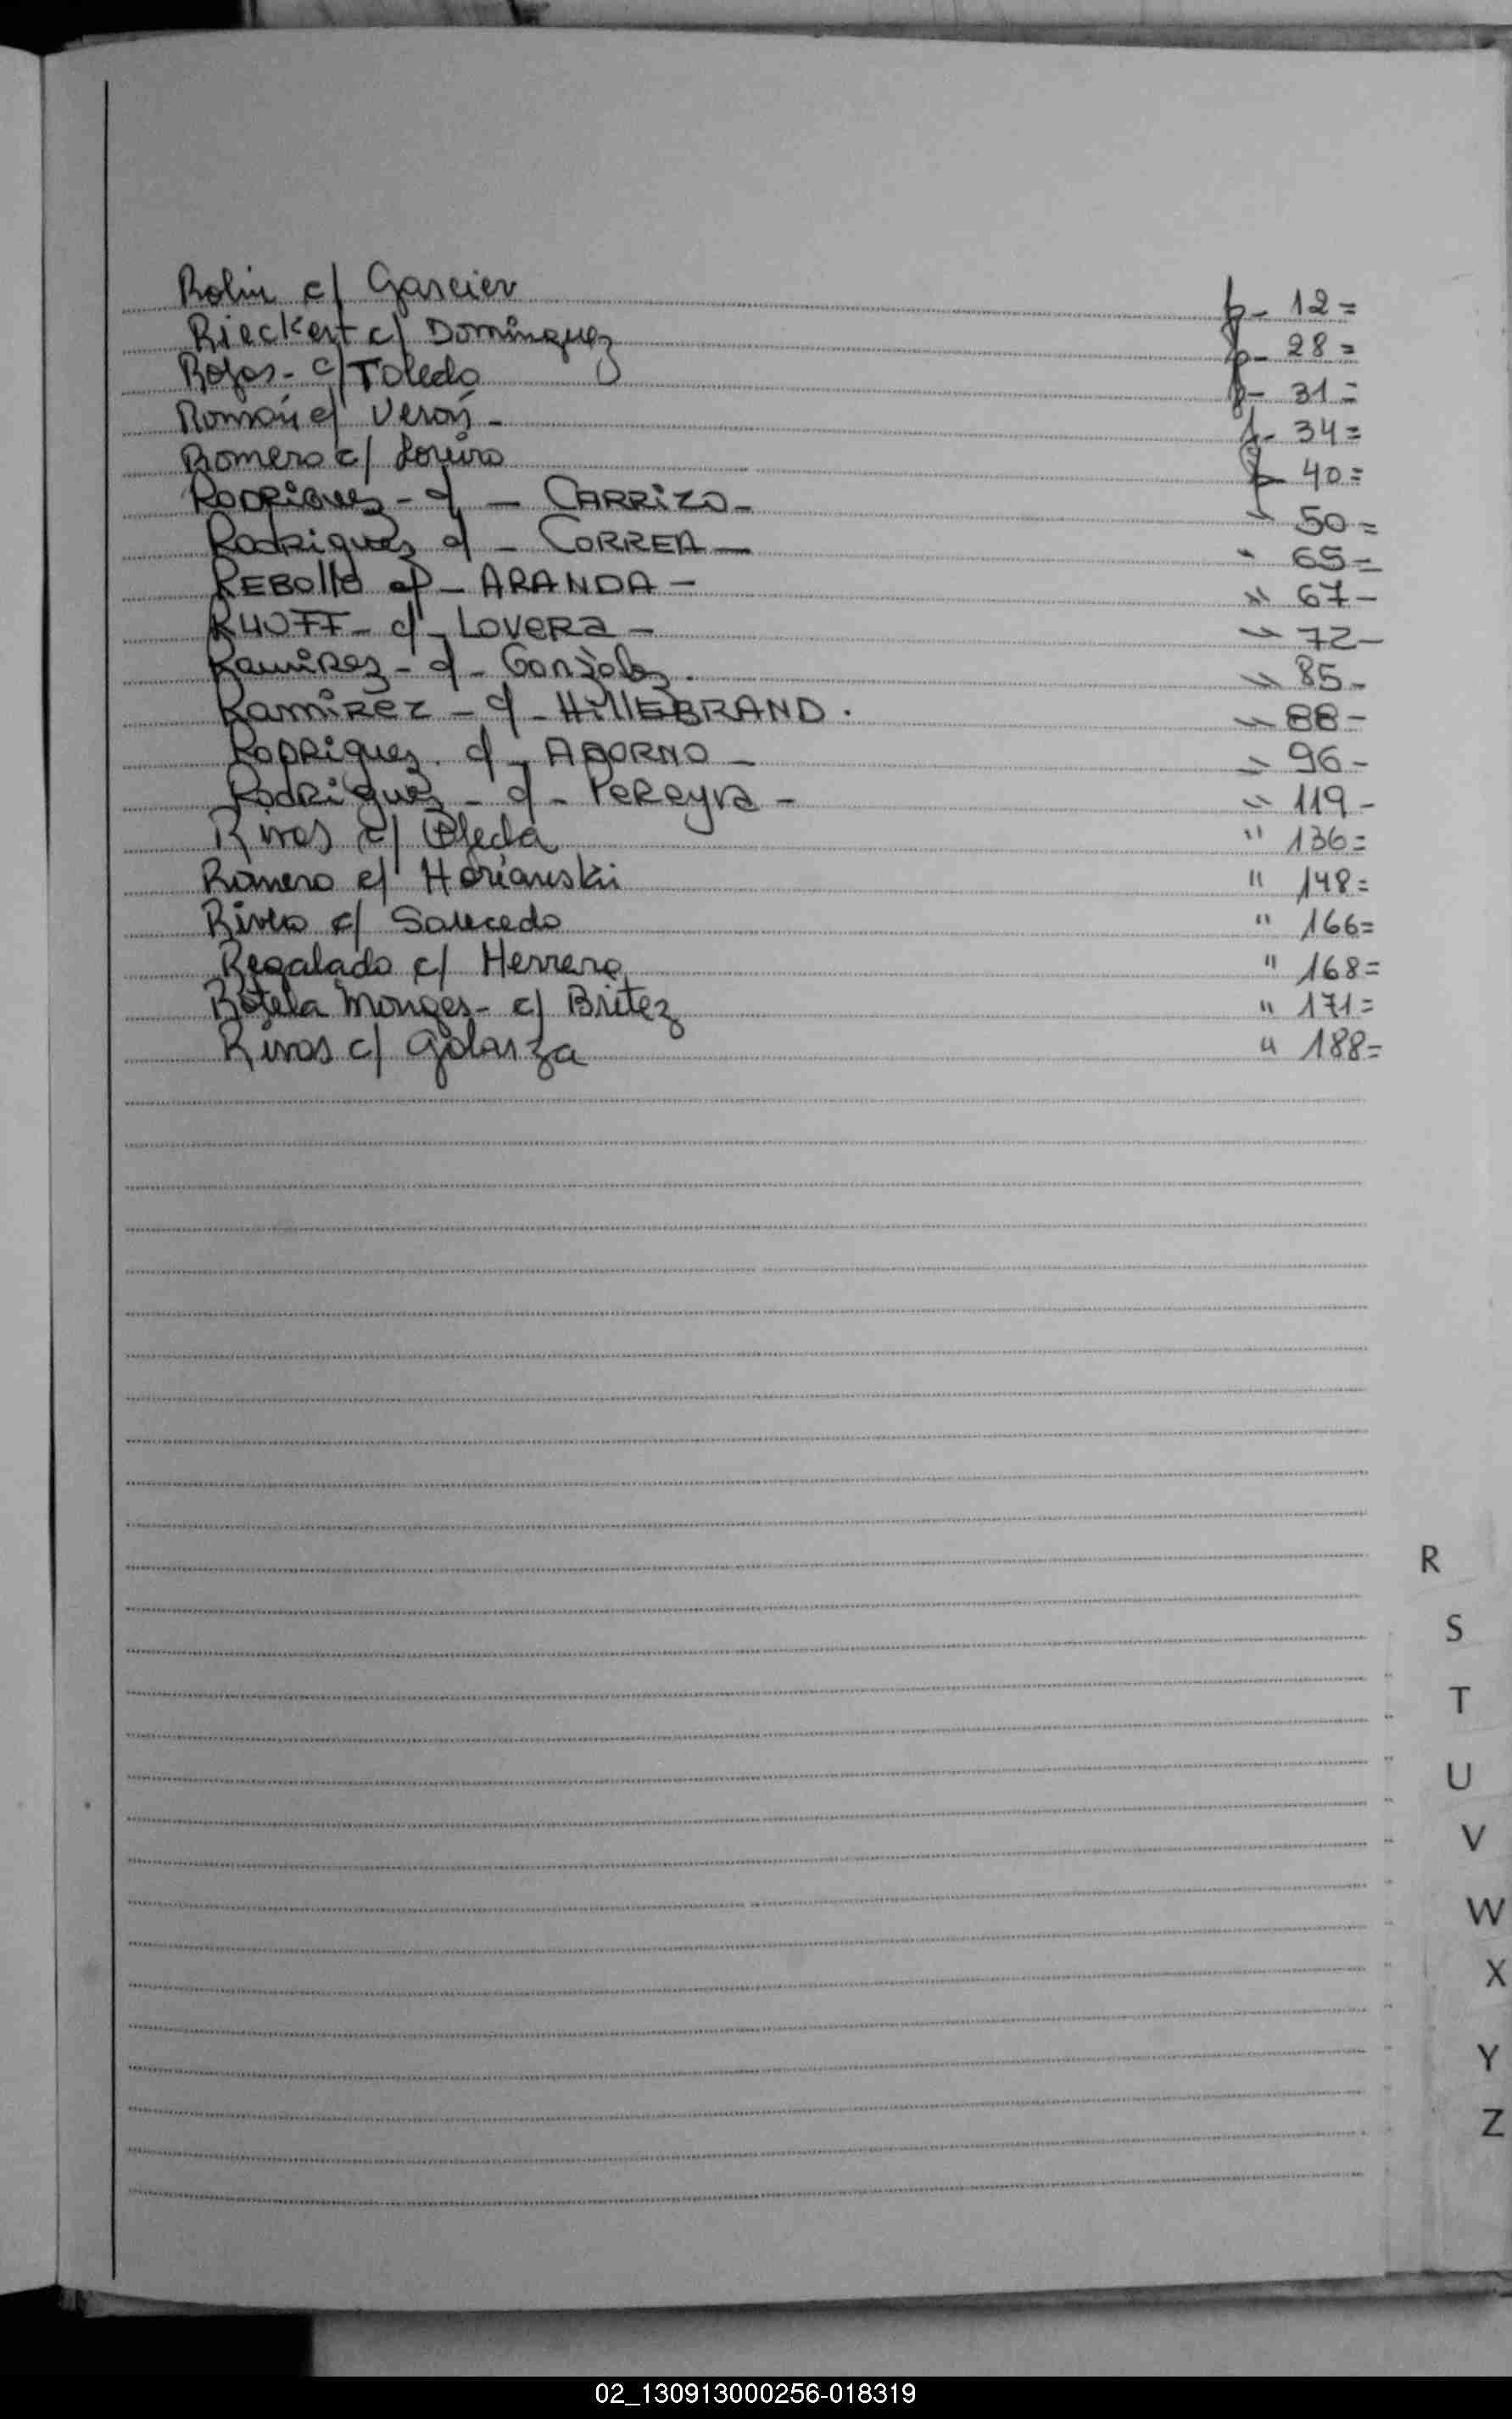 Rolin c/ Garcier p- 12=
Rieckert c/ Dominguez p- 28=
Rojas- c/ Toledo p- 31=
Román c/ Verón- p- 34=
Romero c/ Loreiro p- 40=
RODRiGuez - c/ - CARRiZO- " 50=
Rodriguez c/ - CORREA- " 65=
REBOllO c/ - ARANDA- " 67-
RUOFF- c/ - LOVERa- " 72-
RamiRez - c/ - Gonzalez. " 85-
RamiREz - c/ - HillEBRAND. " 88-
RODRiguez. c/ - ADORNO- " 96-
RodRiguez - c/ - PeReyra- " 119-
Rivas c/ " 136=
Romero c/ " 148=
c/ Saucedo " 166=
Regalado c/ Herrera " 168=
Rotela Monges- c/ Britez " 171=
Rivas c/ Golarza " 188=
R
S
T
U
V
W
X
Y
Z
02_130913000256-018319